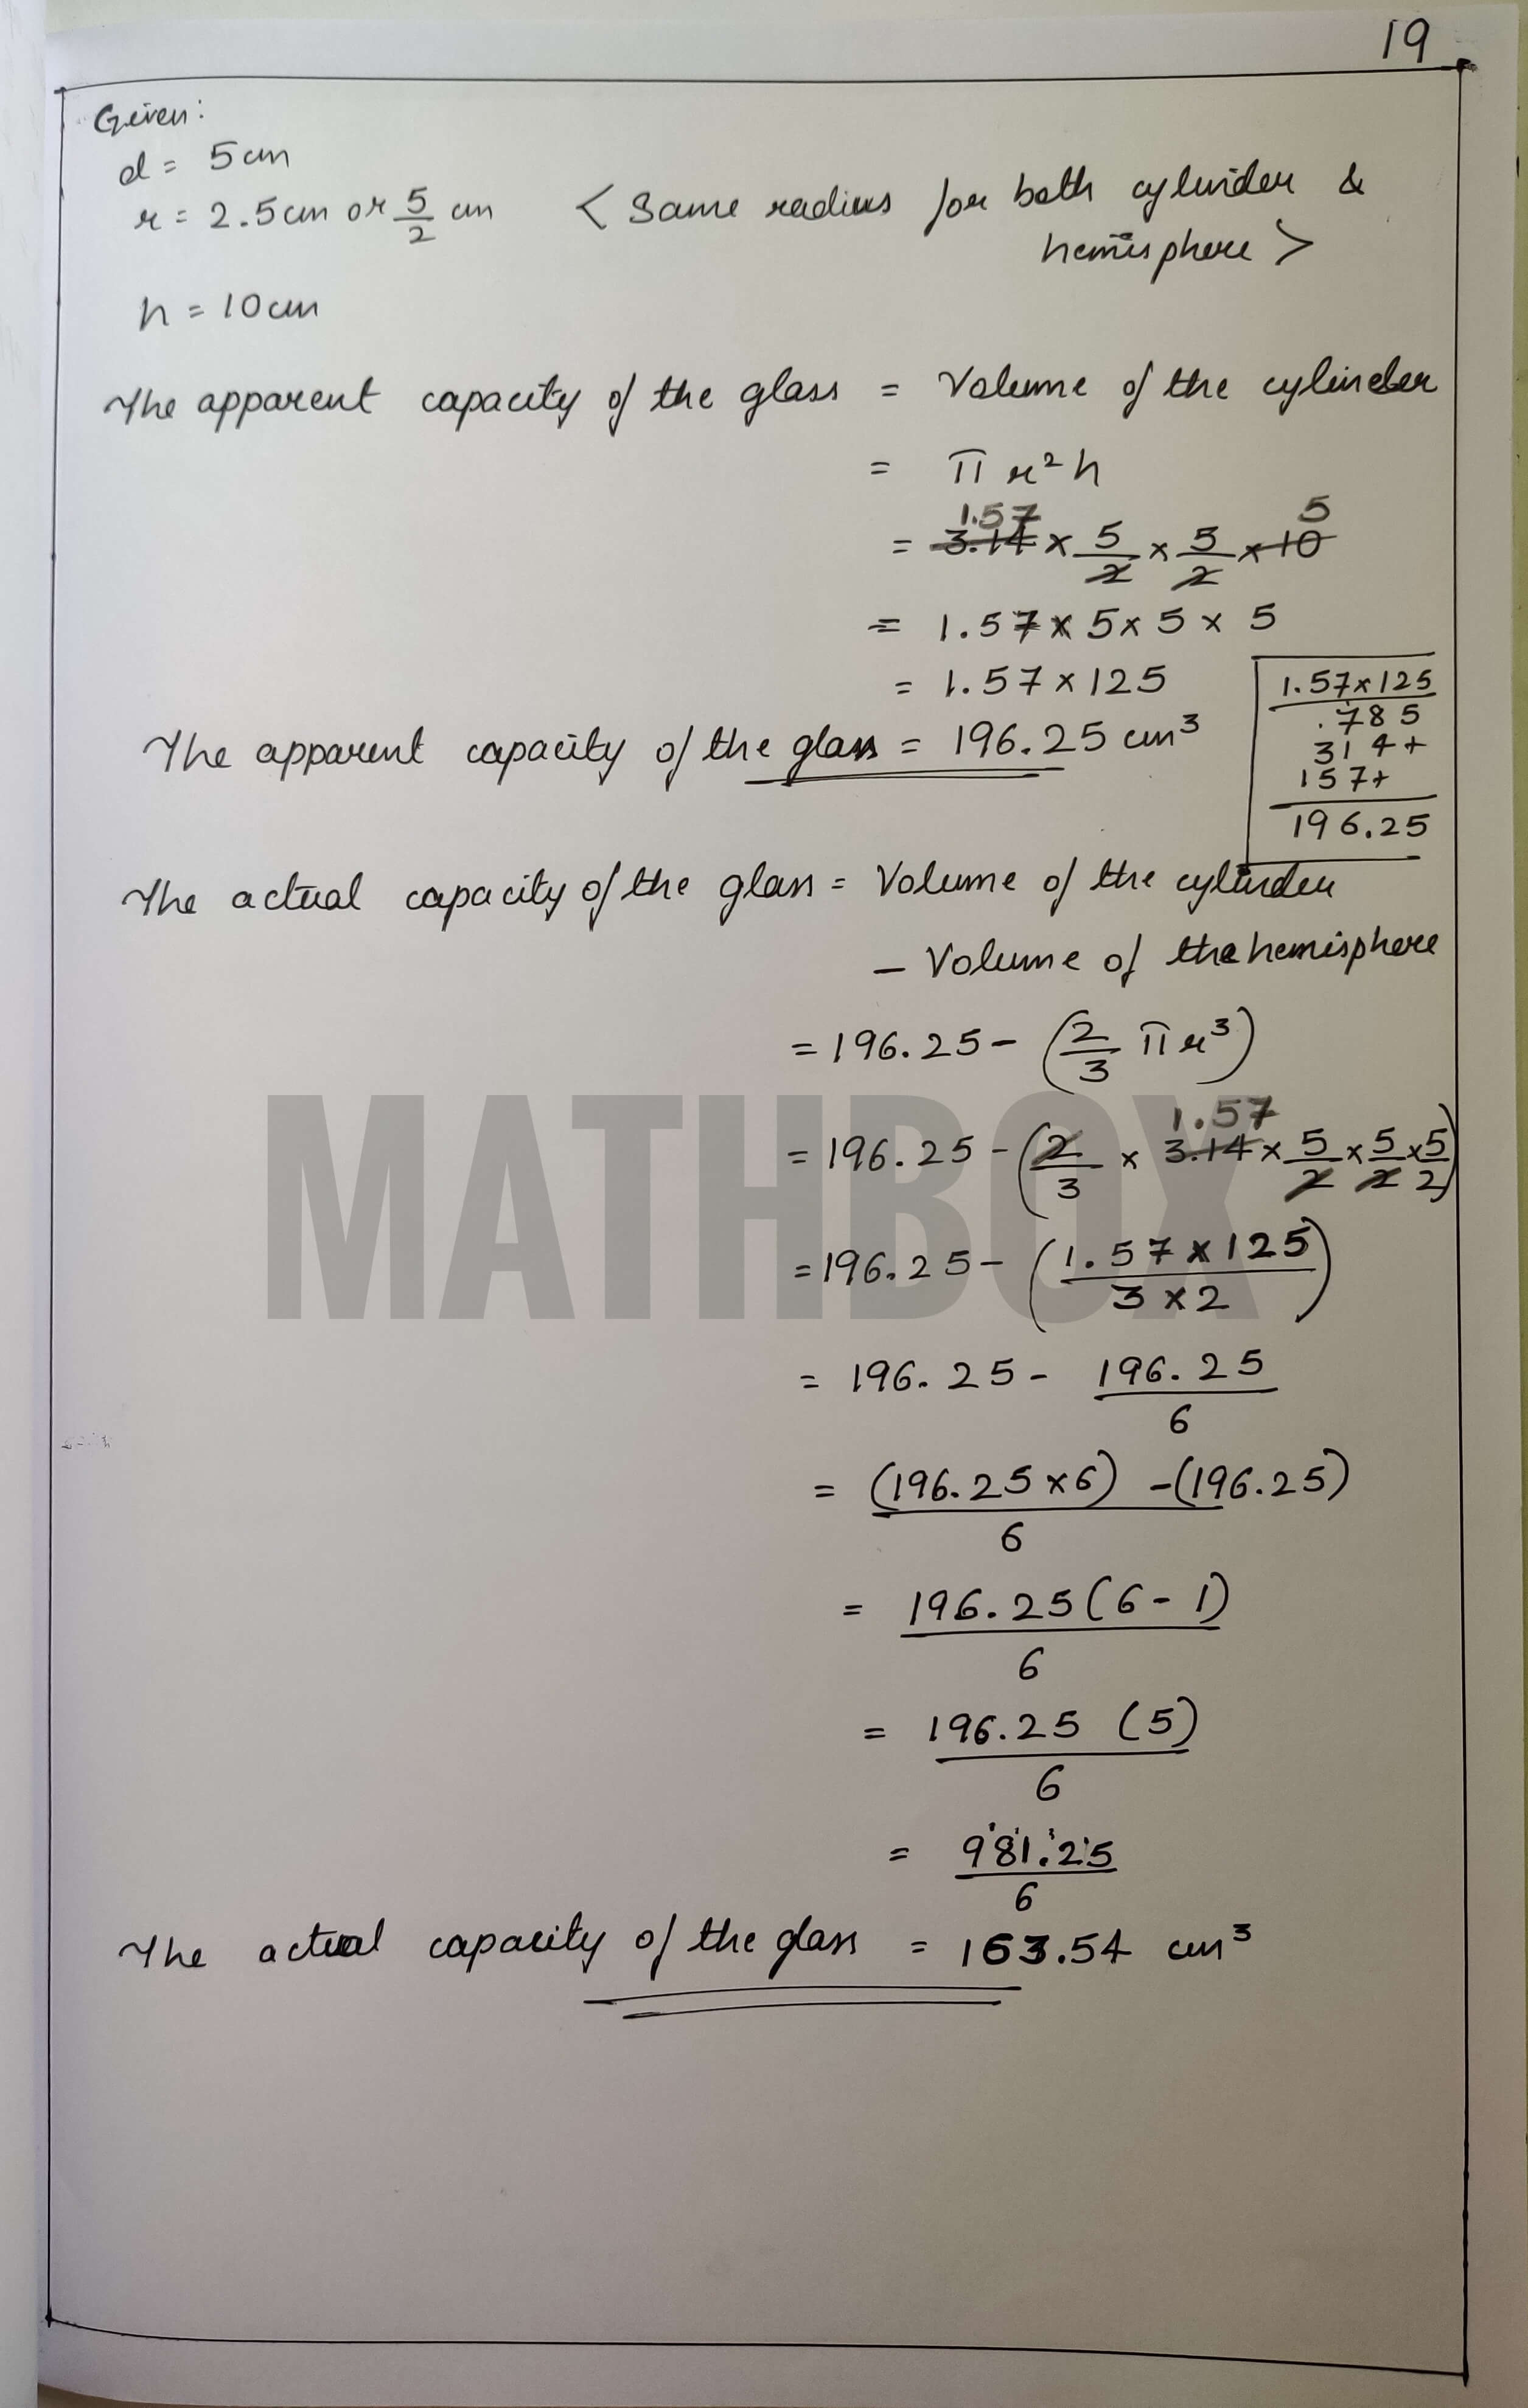 19
Given:
d = 5cm
r = 2.5cm or 5/2 cm < Same radius for both cylinder &
hemisphere >
h = 10cm
The apparent capacity of the glass = Volume of the cylinder
= π r² h
1.57 5
= 3.14 × 5/2 × 5/2 × 10
= 1.57 × 5 × 5 × 5
= 1.57 × 125
The apparent capacity of the glass = 196.25 cm³
1.57 × 125
.785
314+
157+
196.25
The actual capacity of the glass = Volume of the cylinder
– Volume of the hemisphere
= 196.25 – (2/3 π r³)
1.57
= 196.25 – (2/3 × 3.14 × 5/2 × 5/2 × 5/2)
= 196.25 – (1.57 × 125 / 3 × 2)
= 196.25 – 196.25/6
= (196.25 × 6) – (196.25) / 6
= 196.25 (6 – 1) / 6
= 196.25 (5) / 6
= 981.25 / 6
The actual capacity of the glass = 163.54 cm³
MATHBOX